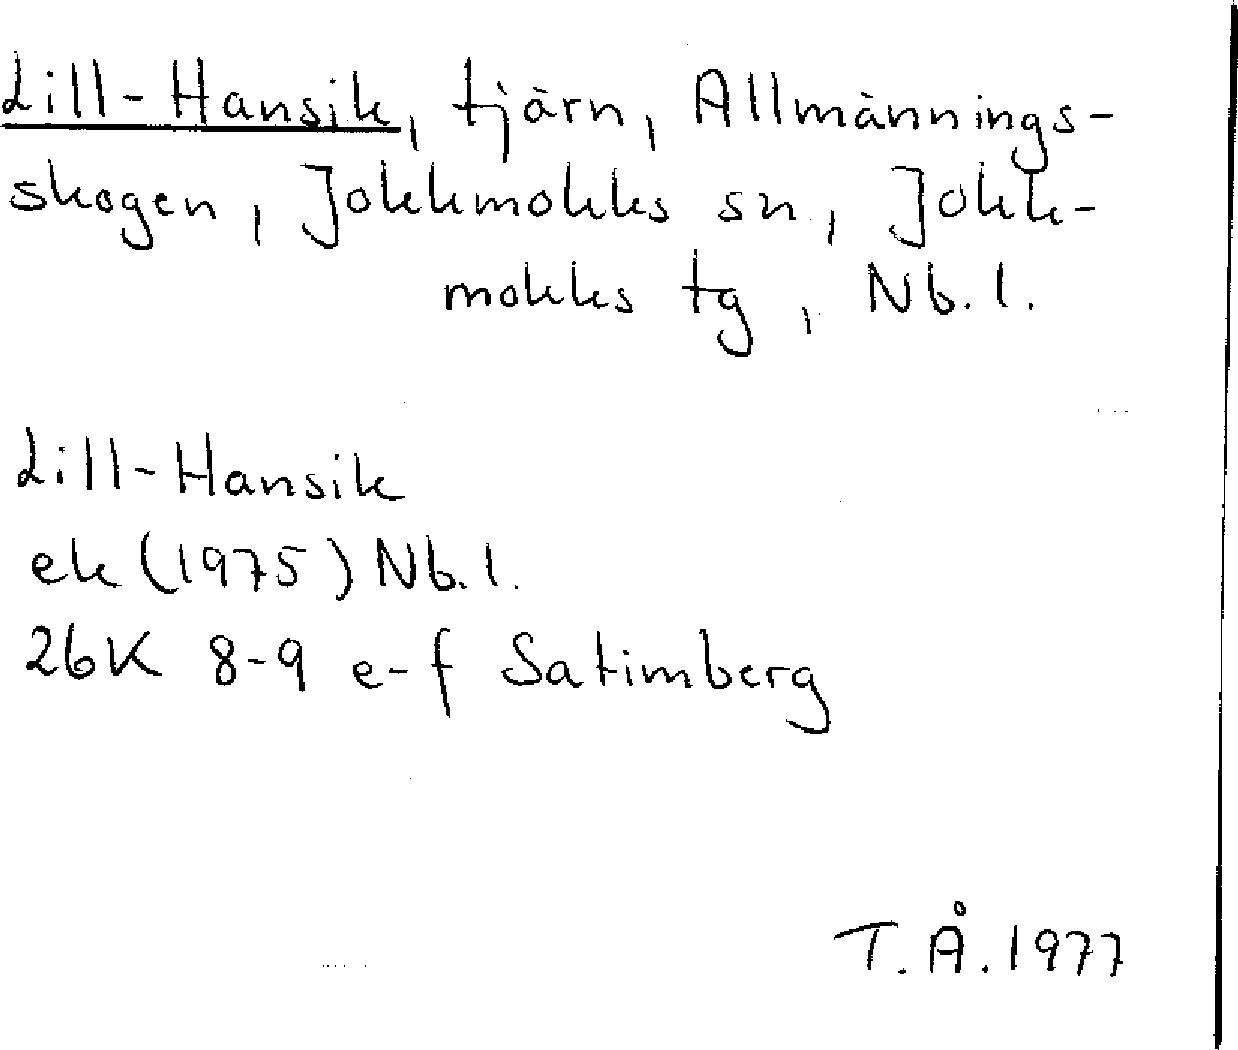 Lill-Hansik, tjärn, Allmännings-
skogen, Jokkmokks sn, Jokk-
mokks tg, Nb. l.
Lill-Hansik
ek (1975) Nb. l.
26K 8-9 e-f Satimberg
T. Å. 1977